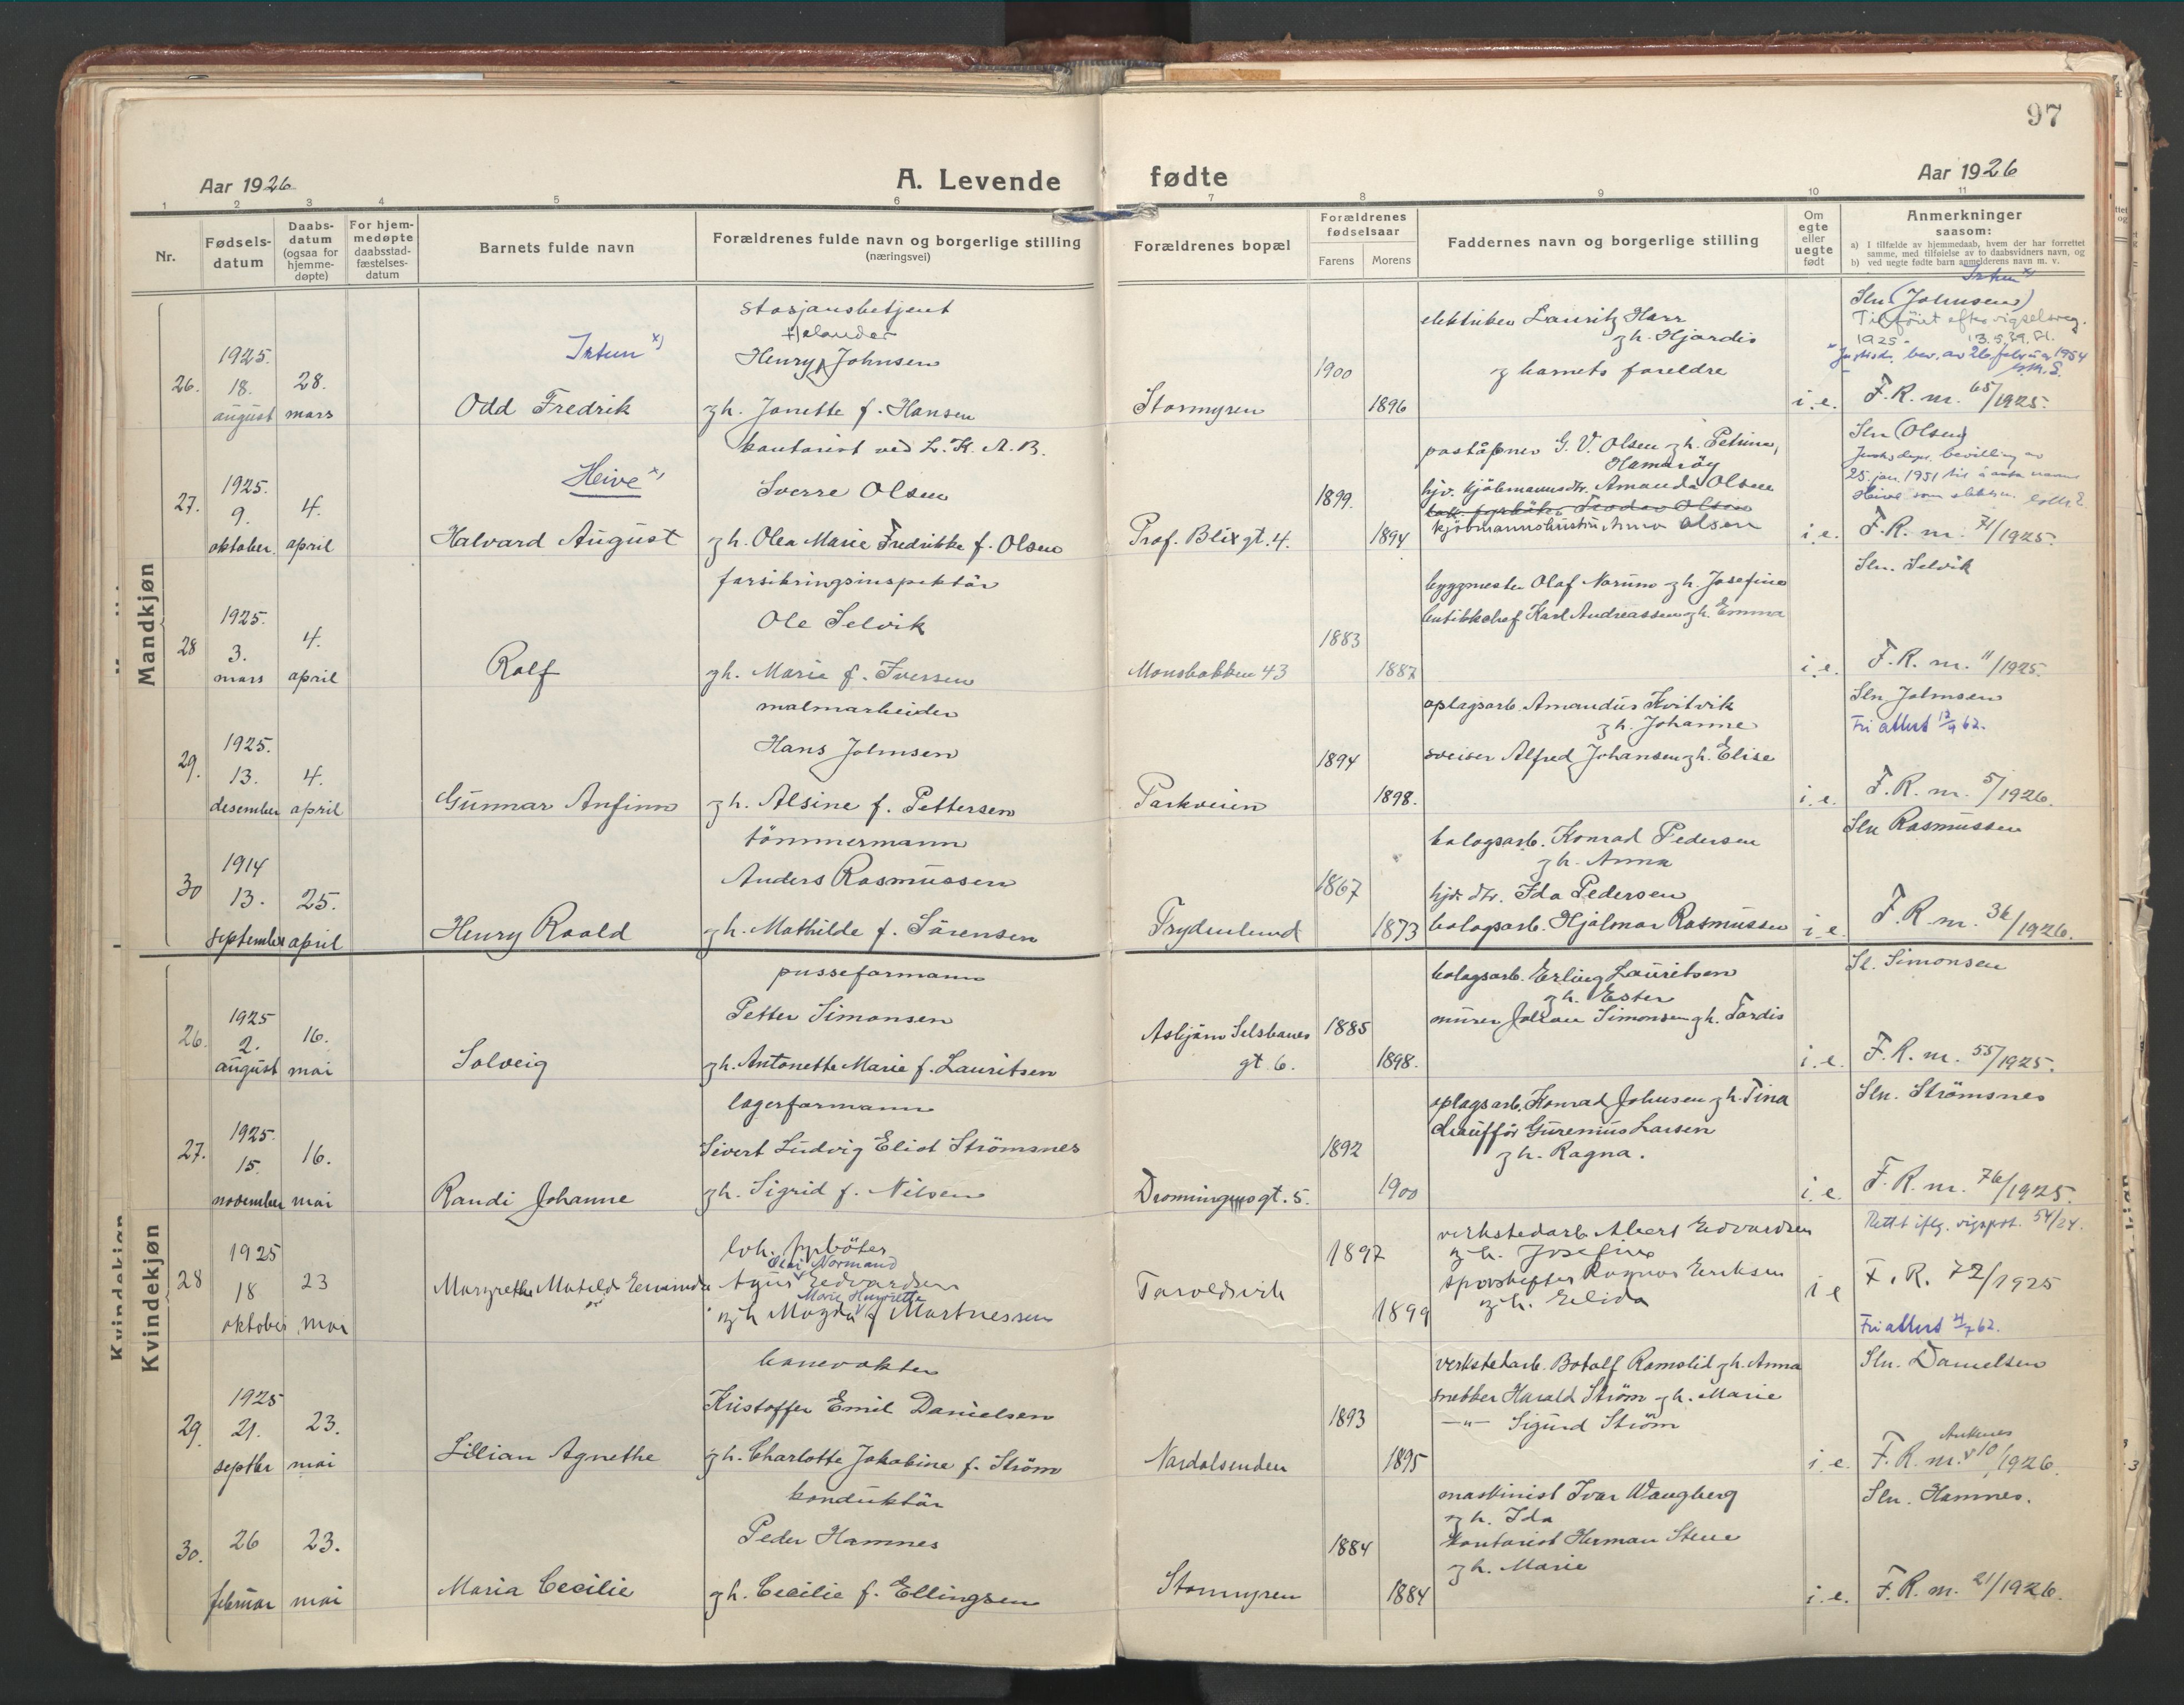 97
Aar 1926
A. Levende fødte
Aar 1926
1 2 3 4 5 6 7 8 9 10 11
Nr.
Fødsels-
datum
Daabs-
datum
(ogsaa for
hjemme-
døpte)
For hjem-
medøpte
daabsstad-
fæstelses-
datum
Barnets fulde navn
Forældrenes fulde navn og borgerlige stilling
(næringsvei)
Forældrenes bopæl
Forældrenes
fødselsaar
Farens Morens
Faddernes navn og borgerlige stilling
Om
egte
eller
uegte
født
Anmerkninger
saasom:
a) I tilfælde av hjemmedaab, hvem der har forrettet
samme, med tilføielse av to daabsvidners navn, og
b) ved uegte fødte barn anmelderens navn m. v.
Mandkjøn
26.
1925.
18.
august
28.
mars
Odd Fredrik
stasjonsbetjent
Helander
Henry Johnsen
gh. Jonette f. Hansen
Stormyren
1900
1896
elektriker Lauritz Harr
gh. Hjørdis
g barnets foreldre
i. e.
Sln (Johnsen)
Tilføiet efter vigselsreg.
1925 - 13.5.39. Sl.
Justisd. bev. av 26 februar 1954
F. R. nr. 65/1925.
27.
1925.
9.
oktober
4.
april
Heive x)
Halvard August
kontorist ved L. K. A. B.
Sverre Olsen
gh. Olea Marie Fredrikke f. Olsen
Prof. Blixgt. 4.
1899.
1894
poståpner G. V. Olsen gh. Petrine,
Hamarøy
hjv. kjøbmannsdtr. Amanda Olsen
kjøbmannshustru Anna Olsen
i. e.
Sln (Olsen)
Justisdeps. bevilling av
25. jan. 1951 til å anta navnet
Heive som slektsn.
F. R. nr. 71/1925.
28
1925.
3.
mars
4.
april
Rolf
forsikringsinspektør
Ole Selvik
gh. Marie f. Iversen
Monsbakken 43
1883
1887
byggmester Olaf Norum gh. Josefine
butikkchef Karl Andreassen gh. Emma
i. e.
Sln. Selvik
F. R. nr. 11/1925.
29.
1925.
13.
desember
4.
april
Gunnar Anfinn
malmarbeider
Hans Johnsen
gh. Alsine f. Pettersen
Parkveien
1894
1898.
oplagsarb. Amandus Kvitvik
gh. Johanne
sveiser Alfred Johansen gh. Elise
i. e.
Sln Johnsen
Fri attest 13/9 62.
F. R. nr. 5/1926.
30
1914
13.
september
25.
april
Henry Roald
tømmermann
Anders Rasmussen
gh. Mathilde f. Sørensen
Frydenlund
1867
1873
bolagsarb. Konrad Pedersen
gh. Anna
hjv. dtr. Ida Pedersen
bolagsarb. Hjalmar Rasmussen
i. e.
Sln Rasmussen
F. R. nr. 36/1926.
Kvindekjøn
26.
1925
2.
august
16.
mai
Solveig
pusseformann
Petter Simonsen
gh. Antonette Marie f. Lauritsen
Asbjørn Selsbanes
gt. 6.
1885
1898.
bolagsarb. Erling Lauritsen
gh. Ester
murer Johan Simonsen gh. Tordis
i. e.
Sl. Simonsen
F. R. nr. 55/1925.
27.
1925.
15.
november
16.
mai
Randi Johanne
lagerformann
Sivert Ludvig Eliot Strømsnes
gh. Sigrid f. Nilsen
Dronningensgt. 5.
1892
1900
oplagsarb. Konrad Johnsen gh. Tina
chauffør Gurenius Larsen
gh. Ragna.
i. e.
Sln. Strømsnes
F. R. nr. 76/1925.
28
1925
18
oktober
23
mai
Margrethe Matilde
lok. fyrbøter
Normand
Edvardsen
Marie Henriette
gh Magda f Martnessen
Taraldsvik
1897
1899
verkstedarb. Albert Edvardsen
gh. Josefine
sporskifter Ragnar Eriksen
gh. Elida
i e
Rettet iflg. vigsprot. 54/24.
F. R. 72/1925
Fri attest 21/7 62.
29.
1925
21.
septbr
23.
mai
Lillian Agnethe
banevokter
Kristoffer Emil Danielsen
gh. Charlotte Jakobine f. Strøm
Nordalsenden
1893
1895
verkstedarb. Botolf Ramslid gh. Anna
snekker Harald Strøm gh. Marie
—"— Sigurd Strøm
i. e.
Sln. Danielsen
Ankenes
F. R. nr. 10/1926.
30.
26
februar
23.
mai
Maria Cecilie
konduktør
Peder Hamnes
gh. Cecilie f. Ellingsen
Stormyren
1884
1884
maskinist Ivar Wangberg
gh. Ida
kontorist Herman Stene
gh. Marie
i. e.
Sln. Hamnes.
F. R. nr. 21/1926.